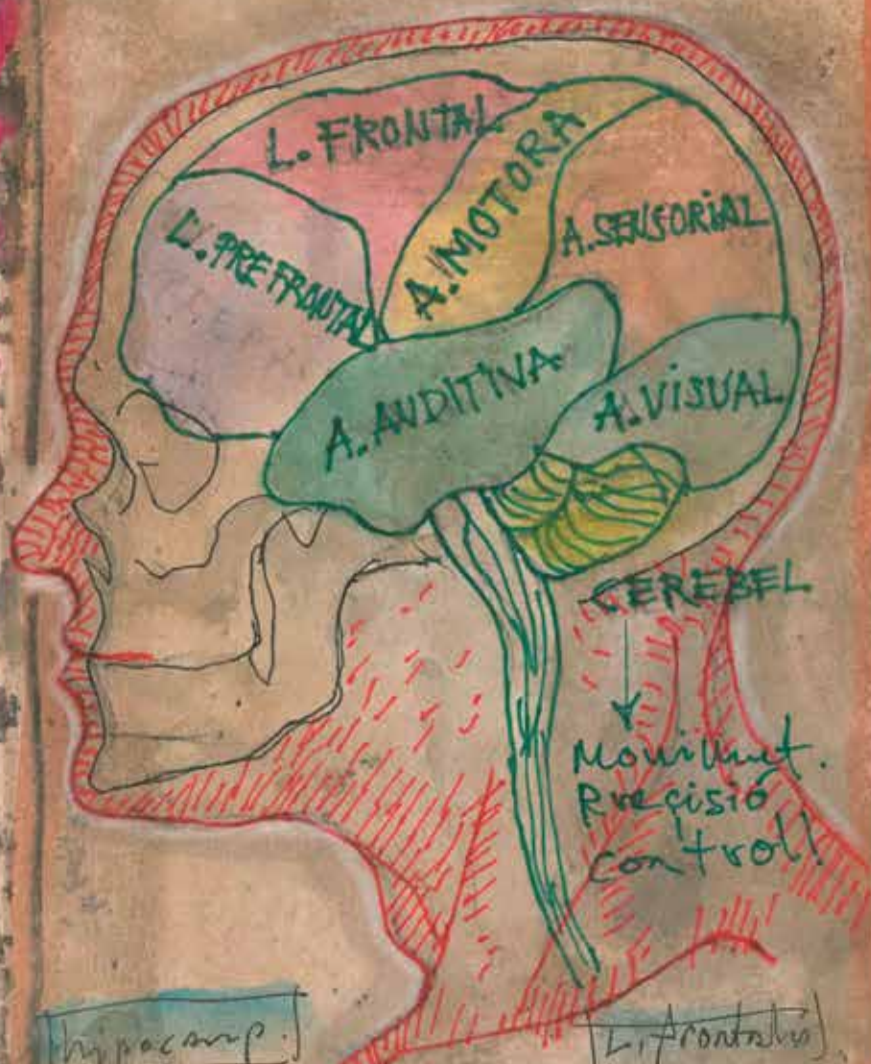 L. FRONTAL
A. MOTORA
L. PREFRONTAL
A. SENSORIAL
A. AUDITIVA
A. VISUAL
CEREBEL
Movimnt.
Precisió
control!
hipocamp.
L. frontal